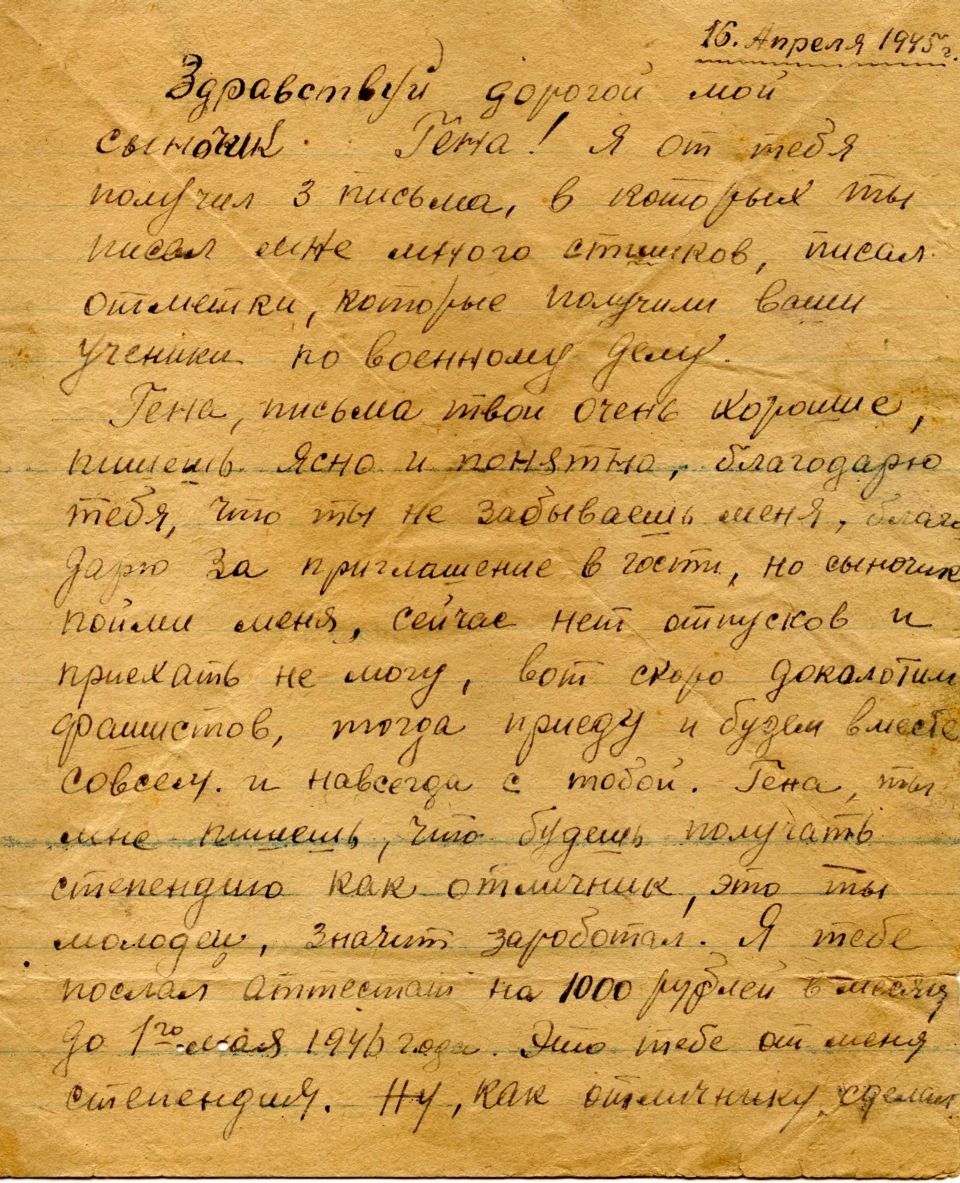 16. Апреля 1945 г.
Здравствуй дорогой мой
сыночик Гена! Я от тебя
получил 3 письма, в которых ты
писал мне много стишков, писал
отметки, которые получили ваши
ученики по военному делу.
Гена, письма твои очень хорошие,
пишешь ясно и понятно, благодарю
тебя, что ты не забываешь меня, благо
дарю за приглашение в гости, но сыночик
пойми меня, сейчас нет отпусков и
приехать не могу, вот скоро докалотим
фашистов, тогда приеду и будем вместе
совсем. и навсегда с тобой. Гена, ты
мне пишешь, что будешь получать
степендию как отличник, это ты
молодец, значит зароботал. Я тебе
послал аттестат на 1000 рублей в месяц
до 1го мая 1946 года. Это тебе от меня
степендия. Ну, как отличнику, сделал